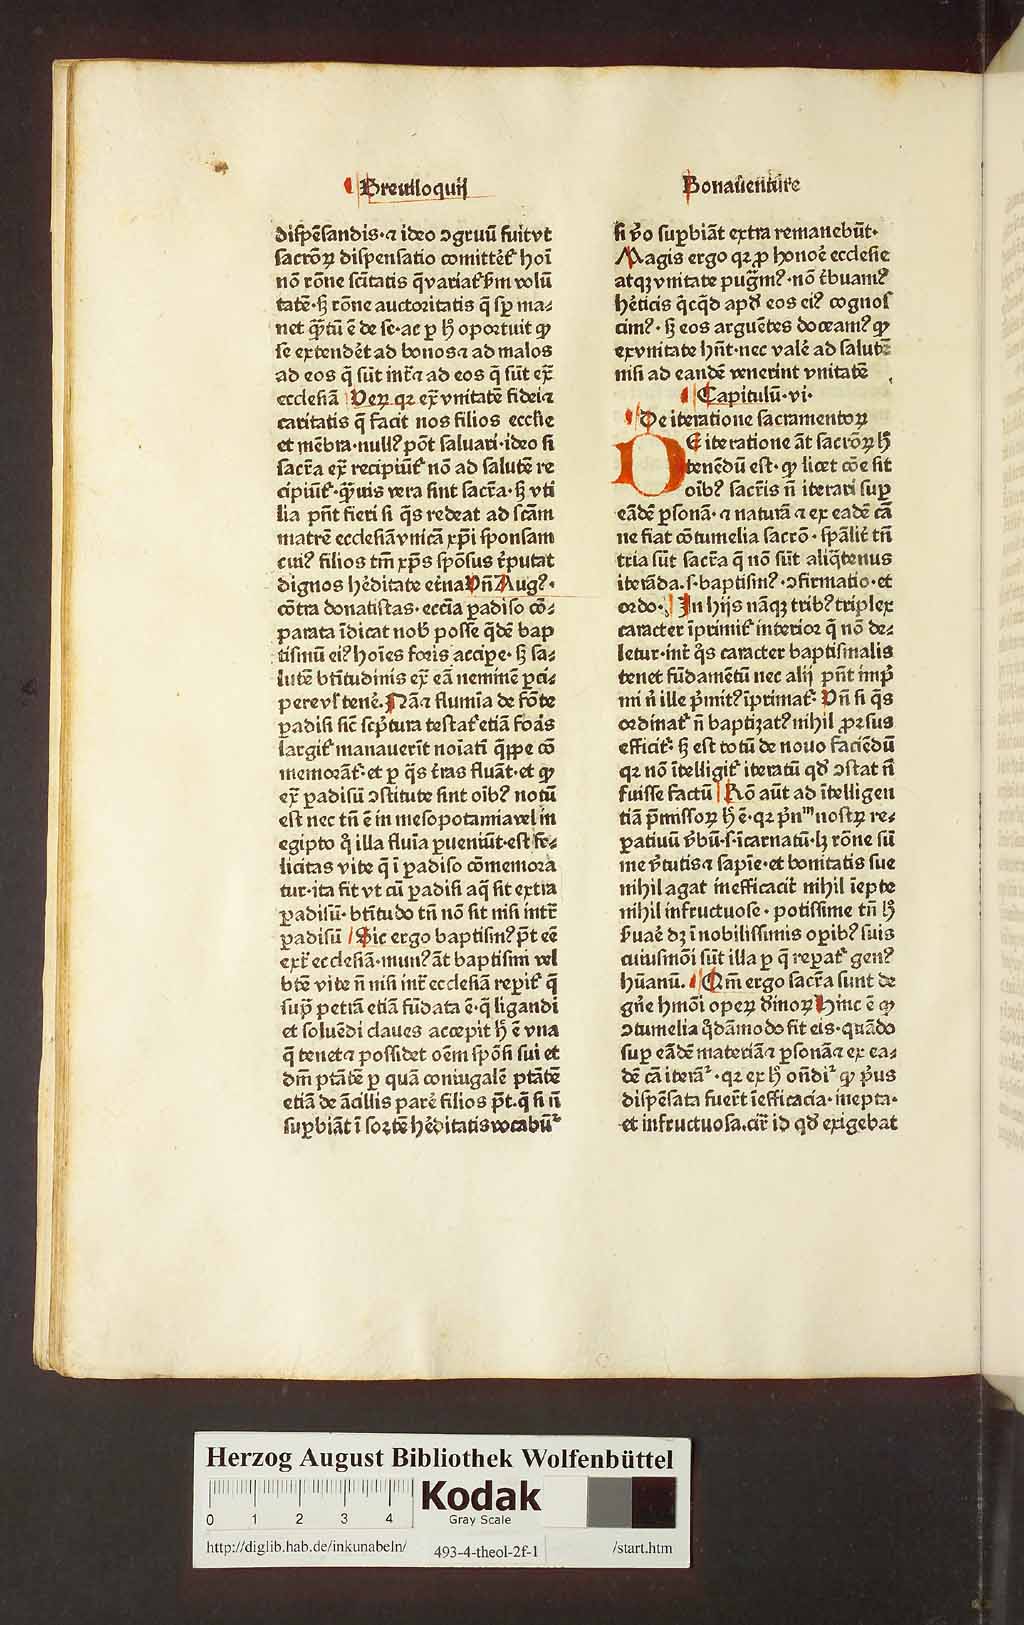 Breuiloquij
Bonauenture
dispēsandis·⁊ ideo ↄgruū fuit vt
sacroꝝ dispensatio comitteret᷑ hoī
nō rōne scītatis q̄ variat᷑ ẜm volū
tatē·ſꝫ rōne auctoritatis q̄ sꝑ ma⸗
net qꝫtū ē de se·ac ꝑ hͦ oportuit ꝙ
se extenderet ad bonos ⁊ ad malos
ad eos q̄ sūt intra ⁊ ad eos q̄ sūt ex̄
ecclesiā Veꝝ qꝛ ex̄ vnitatē fidei ⁊
caritatis q̄ facit nos filios eccl̄ie
et mēbra·nullꝰ pōt saluari·ideo si
sacr̄a ex̄ recipiūt᷑ nō ad salutē re
cipiūt᷑·qꝫuis vera sint sacr̄a·ſꝫ vti
lia pn̄t fieri si q̄s redeat ad scām
matrē ecclesiā vnicā xp̄i sponsam
cuiꝰ filios tm̄ xp̄s spōsus reputat
dignos hereditate eterna Vn̄ Augꝰ·
cōtra donatistas·eccl̄ia ꝑadiso cō⸗
parata īdicat nob̄ posse q̇dē bap
tismū eiꝰ hoīes foris accipe·ſꝫ sa⸗
lutē btītudinis ex̄ eā neminē ꝑci⸗
pere vel tenere. Nā ⁊ flumīa de fōte
ꝑadisi sic̄ scptura testat᷑ etiā foras
largit᷑ manauerūt noīatī q̇ppe cō
memorāt᷑·et ꝑ q̄s t̄ras fluāt·et ꝙ
ex̄ ꝑadisū ↄstitute sint oībꝰ notū
est nec tn̄ ē in mesopotamia vel in
egipto qͦ illa fluīa ꝑueniūt·est fe⸗
licitas vite q̄ ī ꝑadiso cōmemora
tur·ita fit vt cū ꝑadisi aq̄ sit extra
ꝑadisū·btītudo tn̄ nō sit nisi intr̄
ꝑadisū Sic ergo baptismꝰ pt̄ eē
extr̄ ecclesiā·munꝰ āt baptismi vel
btē vite n̄ nisi intr̄ ecclesiā reꝑit᷑ q̄
supra petrā etiā fūdata ē·q̄ ligandi
et soluēdi claues accepit hͦ ē vna
q̄ tenet ⁊ possidet oēm spōsi sui et
dn̄i ptātē ꝑ quā coniugalē ptātē
etiā de ācillis parere filios pt̄·q̄ si n̄
suꝑbiāt ī sortē hereditatis vocabūt᷑
si vero suꝑbiāt extra remanebūt·
Magis ergo qꝛ ꝓ honore ecclesie
atqꝫ vnitate pugmꝰ·nō tribuamꝰ
hereticis q̇cqͥd apd̓ eos eiꝰ cognos
cimꝰ·ſꝫ eos arguētes doceamꝰ ꝙ
ex vnitate hn̄t·nec valere ad salutē
nisi ad eandē venerint vnitatē
Capitulū·vi·
De iteratione sacramentoꝝ
DE iteratione āt sacroꝝ hͦ
tenēdū est·ꝙ licet cōe sit
oībꝰ sacr̄is n̄ iterari suꝑ
eādē ꝑsonā·⁊ naturā ⁊ ex eadē cā
ne fiat cōtumelia sacrō·spālit̄ tn̄
tria sūt sacr̄a q̄ nō sūt aliqͣtenus
iterāda·s·baptismꝰ·ↄfirmatio·et
ordo· In hijs nāqꝫ tribꝰ triplex
caracter īprimit᷑ interior q̄ nō de⸗
letur·int̄ q̄s caracter baptismalis
tenet fūdamētū nec alij pn̄t impri
mi n̄ ille primitꝰ īprimat᷑· Vn̄ si q̄s
ordinat᷑ n̄ baptizatꝰ nihil ꝓrsus
efficit᷑·ſꝫ est totū de nouo faciēdū
qꝛ nō ītelligit᷑ iteratū qd̓ ↄstat n̄
fuisse factū Rō aūt ad ītelligen
tiā pmissoꝝ hͦ ē·qꝛ prin̄m nostꝝ re⸗
ꝑatiuū ꝟbū·s·īcarnatū·ꝗ rōne sū
me ꝟtutis ⁊ sapīe·et bonitatis sue
nihil agat inefficacit̄ nihil īepte
nihil infructuose·potissime tn̄ hͦ
ẜuare dꝫ ī nobilissimis oꝑibꝰ suis
cuiusmōi sūt illa ꝑ q̄ reꝑat᷑ genꝰ
hūanū. Qm̄ ergo sacr̄a sunt de
gn̄e hmōi opeꝝ diuinoꝝ Hinc ē ꝙ
ↄtumelia qͦdāmodo fit eis·quādo
suꝑ eādē materiā ⁊ ꝑsonā ⁊ ex ea⸗
dē cā iterat᷑·qꝛ ex hͦ ondit᷑ ꝙ prius
dispēsata fuerit īefficacia·inepta·
et infructuosa·cū id qd̓ exigebat
Herzog August Bibliothek Wolfenbüttel
0 1 2 3 4
Kodak
Gray Scale
http://diglib.hab.de/inkunabeln/ 493-4-theol-2f-1 /start.htm